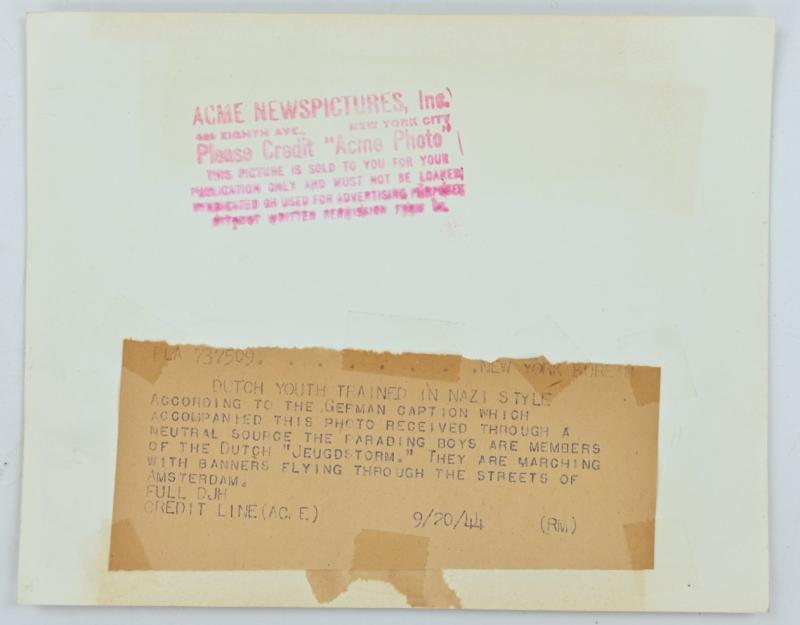 ACME NEWSPICTURES, Inc.
461 EIGHTH AVE., NEW YORK CITY
Please Credit "Acme Photo"
THIS PICTURE IS SOLD TO YOU FOR YOUR
PUBLICATION ONLY AND MUST NOT BE LOANED,
SYNDICATED OR USED FOR ADVERTISING PURPOSES
WITHOUT WRITTEN PERMISSION FROM US.
FLA 737509. . . . . . . . .NEW YORK BUREAU
DUTCH YOUTH TRAINED IN NAZI STYLE
ACCORDING TO THE GERMAN CAPTION WHICH
ACCOMPANIED THIS PHOTO RECEIVED THROUGH A
NEUTRAL SOURCE THE PARADING BOYS ARE MEMBERS
OF THE DUTCH "JEUGDSTORM." THEY ARE MARCHING
WITH BANNERS FLYING THROUGH THE STREETS OF
AMSTERDAM.
FULL DJH
CREDIT LINE(ACME) 9/20/44 (RM)